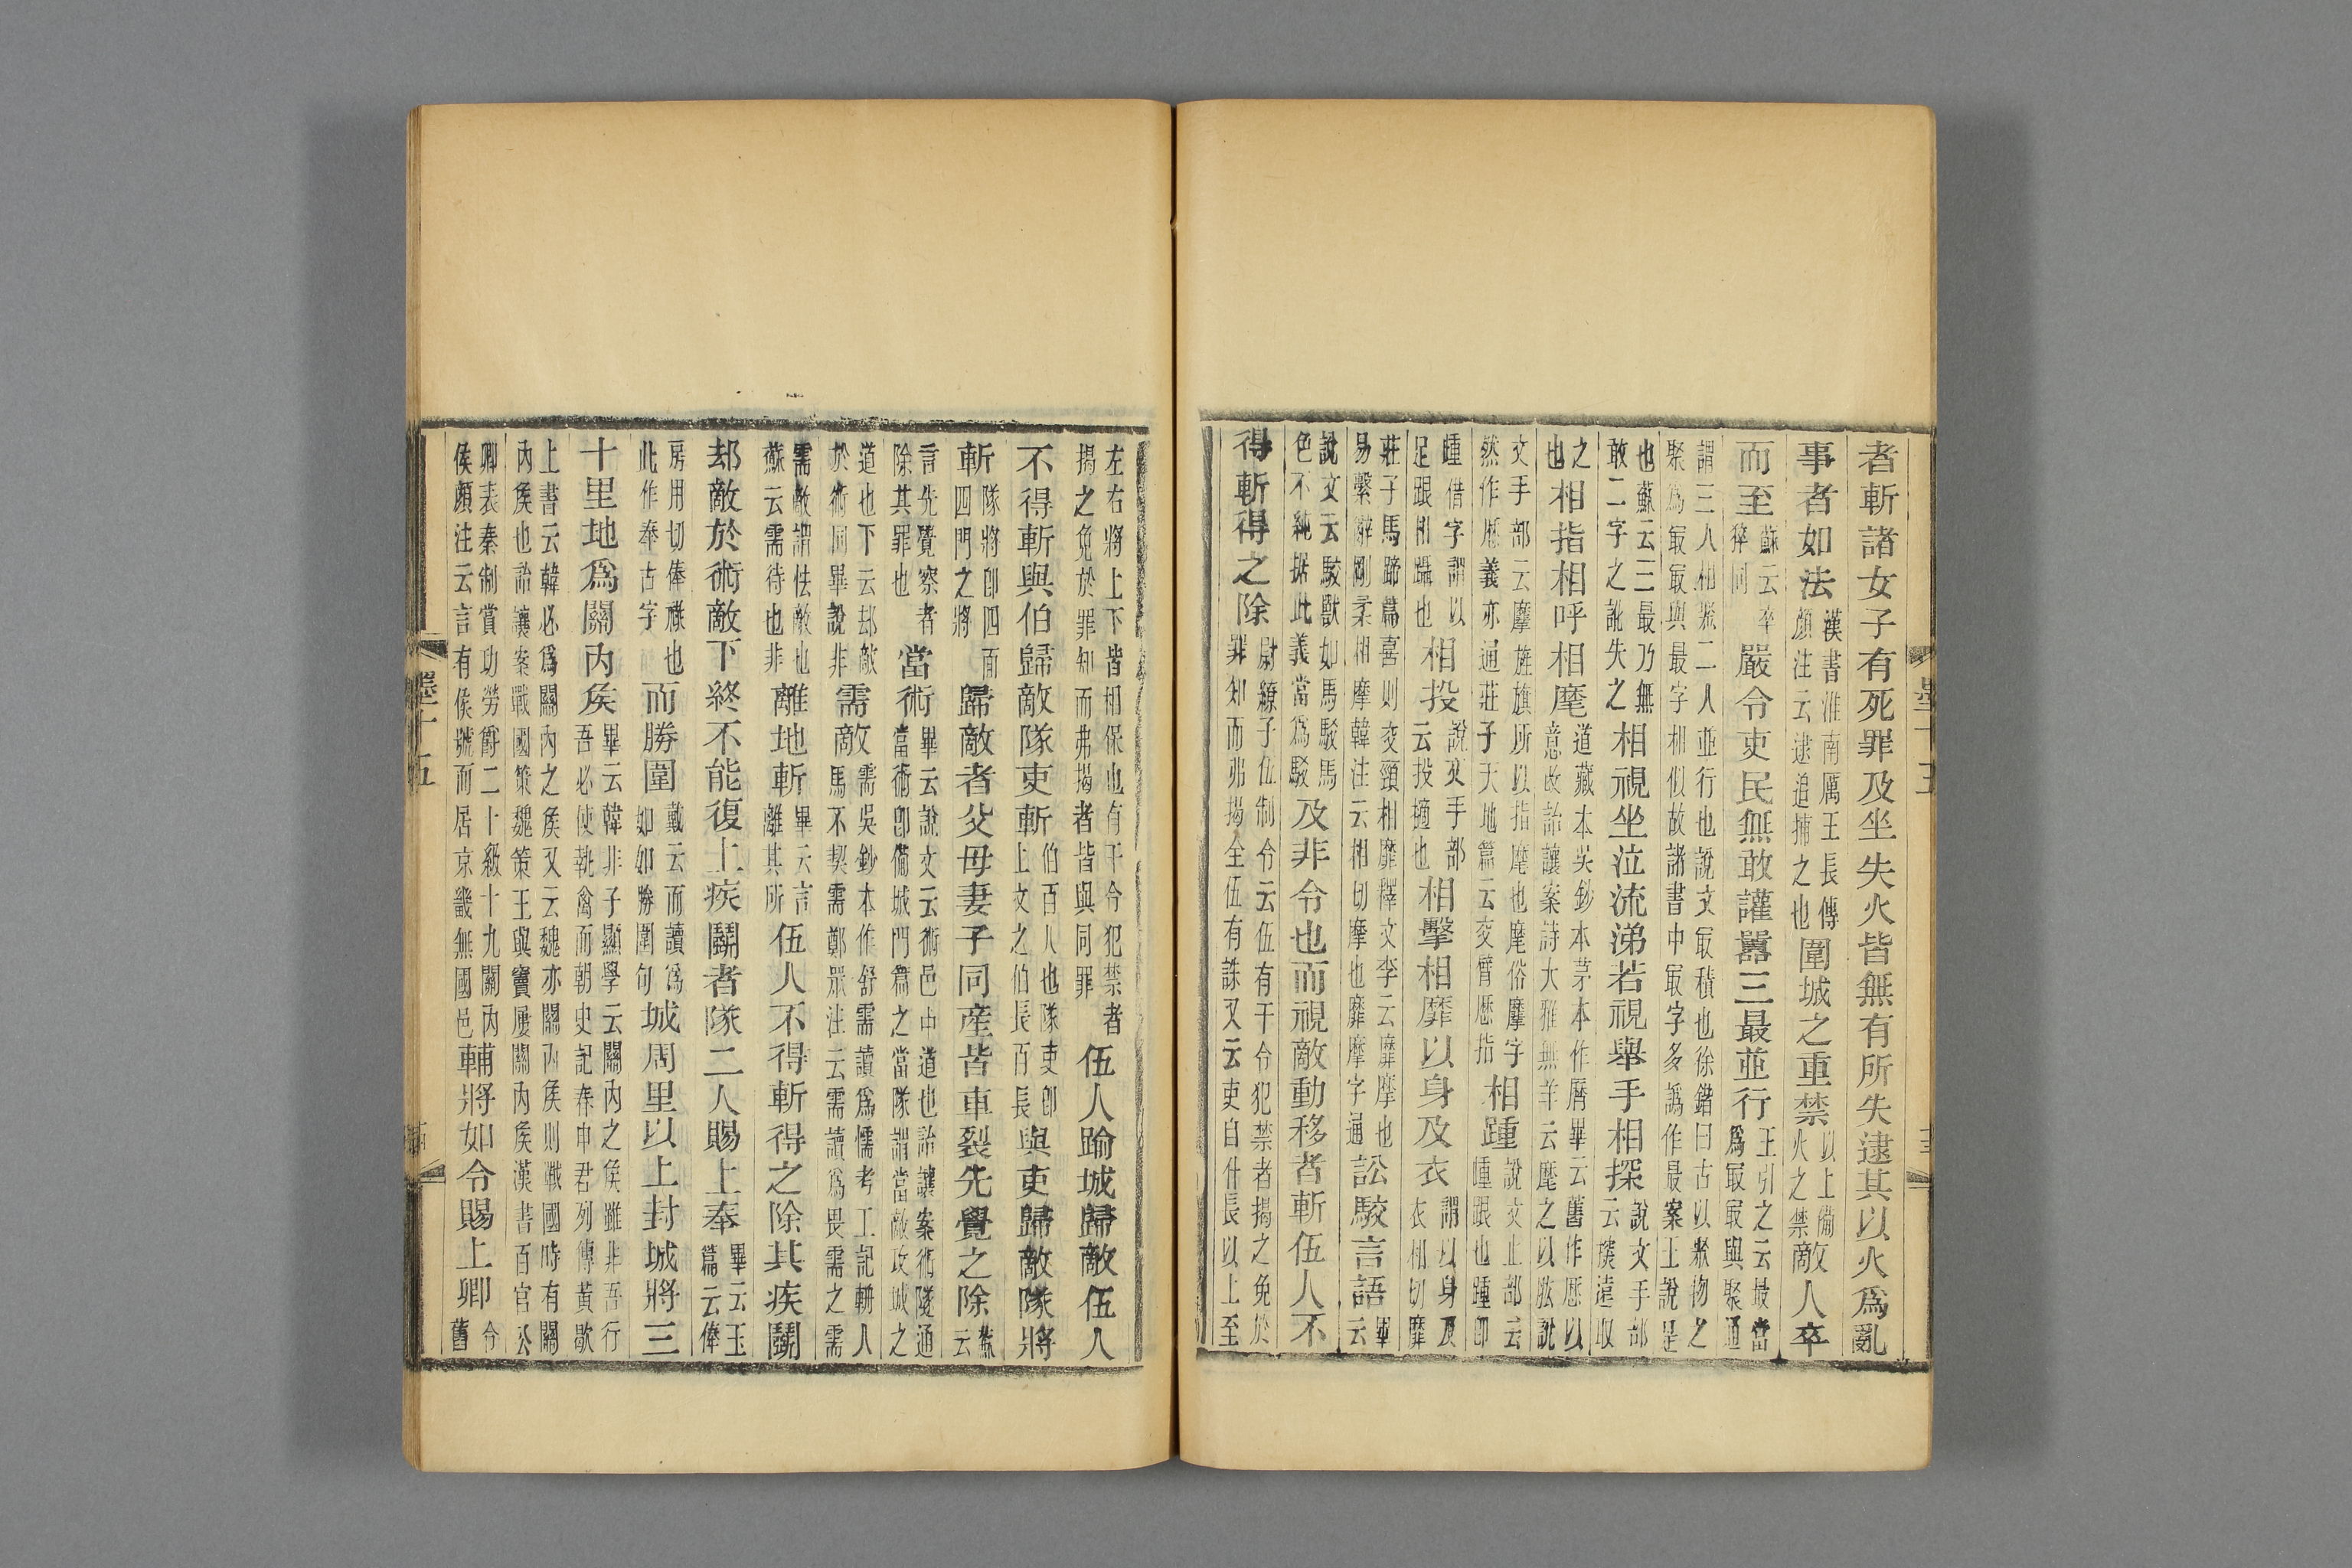 者斬諸女子有死罪及坐失火皆無有所失逮其以火爲亂
事者如法漢書淮南厲王長傳顏注云逮追捕之也圍城之重禁以上備火之禁敵人卒
而至蘇云卒猝同嚴令吏民無敢讙囂三最並行王引之云最當爲冣冣與聚通
謂三人相聚二人並行也說文冣積也徐鍇曰古以聚物之聚爲冣冣與最字相似故諸書中冣字多譌作最案王說是
也蘇云三最乃無敢二字之訛失之相視坐泣流涕若視舉手相探說文手部云㨒遠取
之也相指相呼相麾道藏本吳鈔本茅本作曆畢云舊作歷以意改詒讓案詩大雅無羊云麾之以肱說
文手部云摩旌旗所以指摩也麾俗摩字然作歷義亦通莊子天地篇云交臂歷指相踵說文止部云歱跟也踵即
踵借字謂以足跟相躡也相投說文手部云投擿也相擊相靡以身及衣謂以身及衣相切靡
莊子馬蹄篇喜則交頸相靡釋文李云靡摩也易繫辭剛柔相摩韓注云相切摩也靡摩字通訟駮言語畢云
說文云駮獸如馬駁馬色不純據此義當爲駁及非令也而視敵動移者斬伍人不
得斬得之除尉繚子伍制令云伍有干令犯禁者揭之免於罪知而弗揭全伍有誅又云吏自什長以上至
墨十五
左右將上下皆相保也有干令犯禁者揭之免於罪知而弗揭者皆與同罪伍人踰城歸敵伍人
不得斬與伯歸敵隊吏斬伯百人也隊吏即上文之伯長百長與吏歸敵隊將
斬隊將即四面四門之將歸敵者父母妻子同産皆車裂先覺之除蘇云
言先覺察者除其罪也當術畢云說文云術邑中道也詒讓案術隧通當術即備城門篇之當隊謂當敵攻城之
道也下云却敵於術同畢說非需敵需吳鈔本作舒需讀爲懦考工記輈人馬不契需鄭眾注云需讀爲畏需之需
需敵謂怯敵也蘇云需待也非離地斬畢云言離其所伍人不得斬得之除其疾鬬
却敵於術敵下終不能復上疾鬬者隊二人賜上奉畢云玉篇云俸
房用切俸祿也此作奉古字而勝圍戴云而讀爲如如勝圍句城周里以上封城將三
十里地爲關內侯畢云韓非子顯學云關內之侯雖非吾行吾必使執禽而朝史記春申君列傳黃歇
上書云韓必爲關內之侯又云魏亦關內侯則戰國時有關內侯也詒讓案戰國策魏策王與竇屢關內侯漢書百官公
卿表秦制賞功勞爵二十級十九關內侯顏注云言有侯號而居京畿無國邑輔將如令賜上卿令舊
墨十五